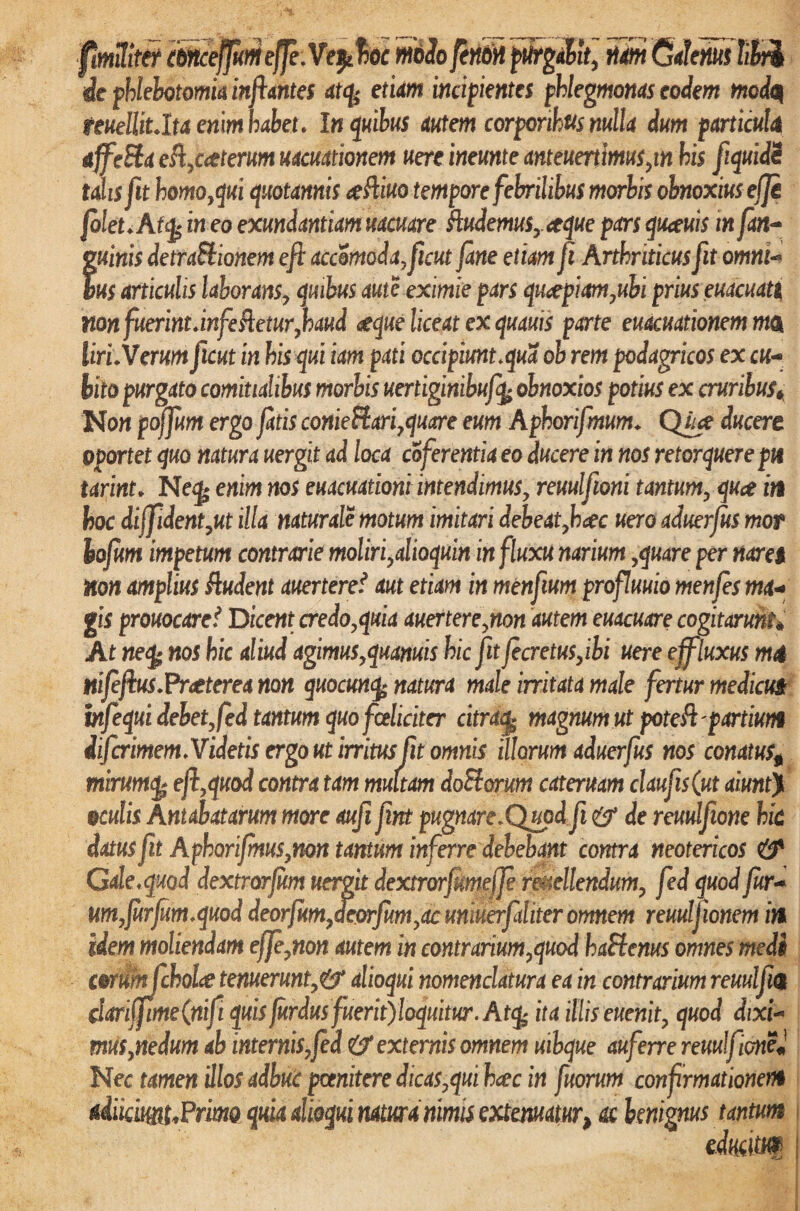 ſimiliter cõnceſſum eſſe. Veꝝ hoc modo ſenon purgabit, nam Galenus libri
de phlebotomia inſtantes atq; etiam incipientes phlegmonas eodem modoq;
reuellit.Ita enim habet. In quibus autem corporibus nulla dum particula
affecta eſt,cæterum uacuationem uere ineunte anteuertimus,in his ſiquidẽ
talis ſit homo,qui quotannis æſtiuo tempore febrilibus morbis obnoxius eſſe
ſolet. Atq; in eo exundantiam uacuare ſtudemus, æque pars quæuis in ſan-
guinis detractionem eſt accõmoda,ſicut ſane etiam ſi Arthriticus ſit omni-
bus articulis laborans, quibus autẽ eximie pars quæpiam,ubi prius euacuati
non fuerint.infeſtetur,haud æque liceat ex quauis parte euacuationem mo
liri.Verum ſicut in his qui iam pati occipiunt.quã ob rem podagricos ex cu-
bito purgato comitialibus morbis uertiginibuſq; obnoxios potius ex cruribus.
Non poſſum ergo ſatis coniectari,quare eum Aphoriſmum. Quæ ducere
oportet quo natura uergit ad loca cõferentia eo ducere in nos retorquere pu
tarint. Neq; enim nos euacuationi intendimus, reuulſioni tantum, quæ in
hoc diſſident,ut illa naturalẽ motum imitari debeat,hæc uero aduerſus mor
boſum impetum contrarie moliri,alioquin in fluxu narium ,quare per nares
non amplius ſtudent auertere? aut etiam in menſium profluuio menſes ma-
gis prouocare? Dicent credo,quia auertere,non autem euacuare cogitarunt.
At neq; nos hic aliud agimus,quanuis hic ſit ſecretus,ibi uere effluxus ma
nifeſtus.Præterea non quocunq; natura male irritata male fertur medicus
inſequi debet,ſed tantum quo fœliciter citraq; magnum ut poteſt partium
diſcrimem.Videtis ergo ut irritus ſit omnis illorum aduerſus nos conatus,
mirumq; eſt,quod contra tam multam doctorum cateruam clauſis(ut aiunt)
oculis Antabatarum more auſi ſint pugnare.Quod ſi & de reuulſione hic
datus ſit Aphoriſmus,non tantum inferre debebant contra neotericos &
Gale.quod dextrorſum uergit dextrorſumeſſe reuellendum, ſed quod ſur-
um,ſurſum.quod deorſum,deorſum,ac uniuerſaliter omnem reuulſionem in
idem moliendam eſſe,non autem in contrarium,quod hactenus omnes medi
corum ſcholæ tenuerunt,& alioqui nomenclatura ea in contrarium reuulſio
clariſſime(niſi quis ſurdus fuerit)loquitur. Atq; ita illis euenit, quod dixi-
mus,nedum ab internis,ſed & externis omnem uibque auferre reuulſionẽ.
Nec tamen illos adhuc pœnitere dicas,qui hæc in ſuorum confirmationem
adiiciunt.Primo quia alioqui natura nimis extenuatur, ac benignus tantum
educitur